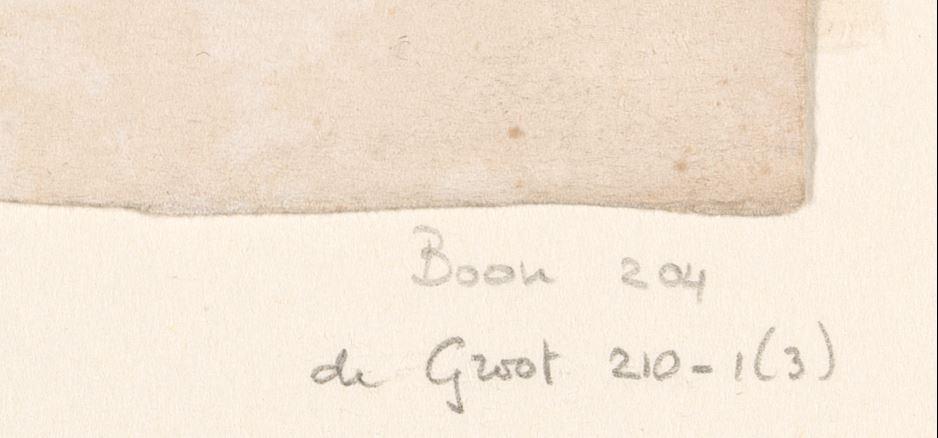 Boon 204
de Groot 210-1(3)